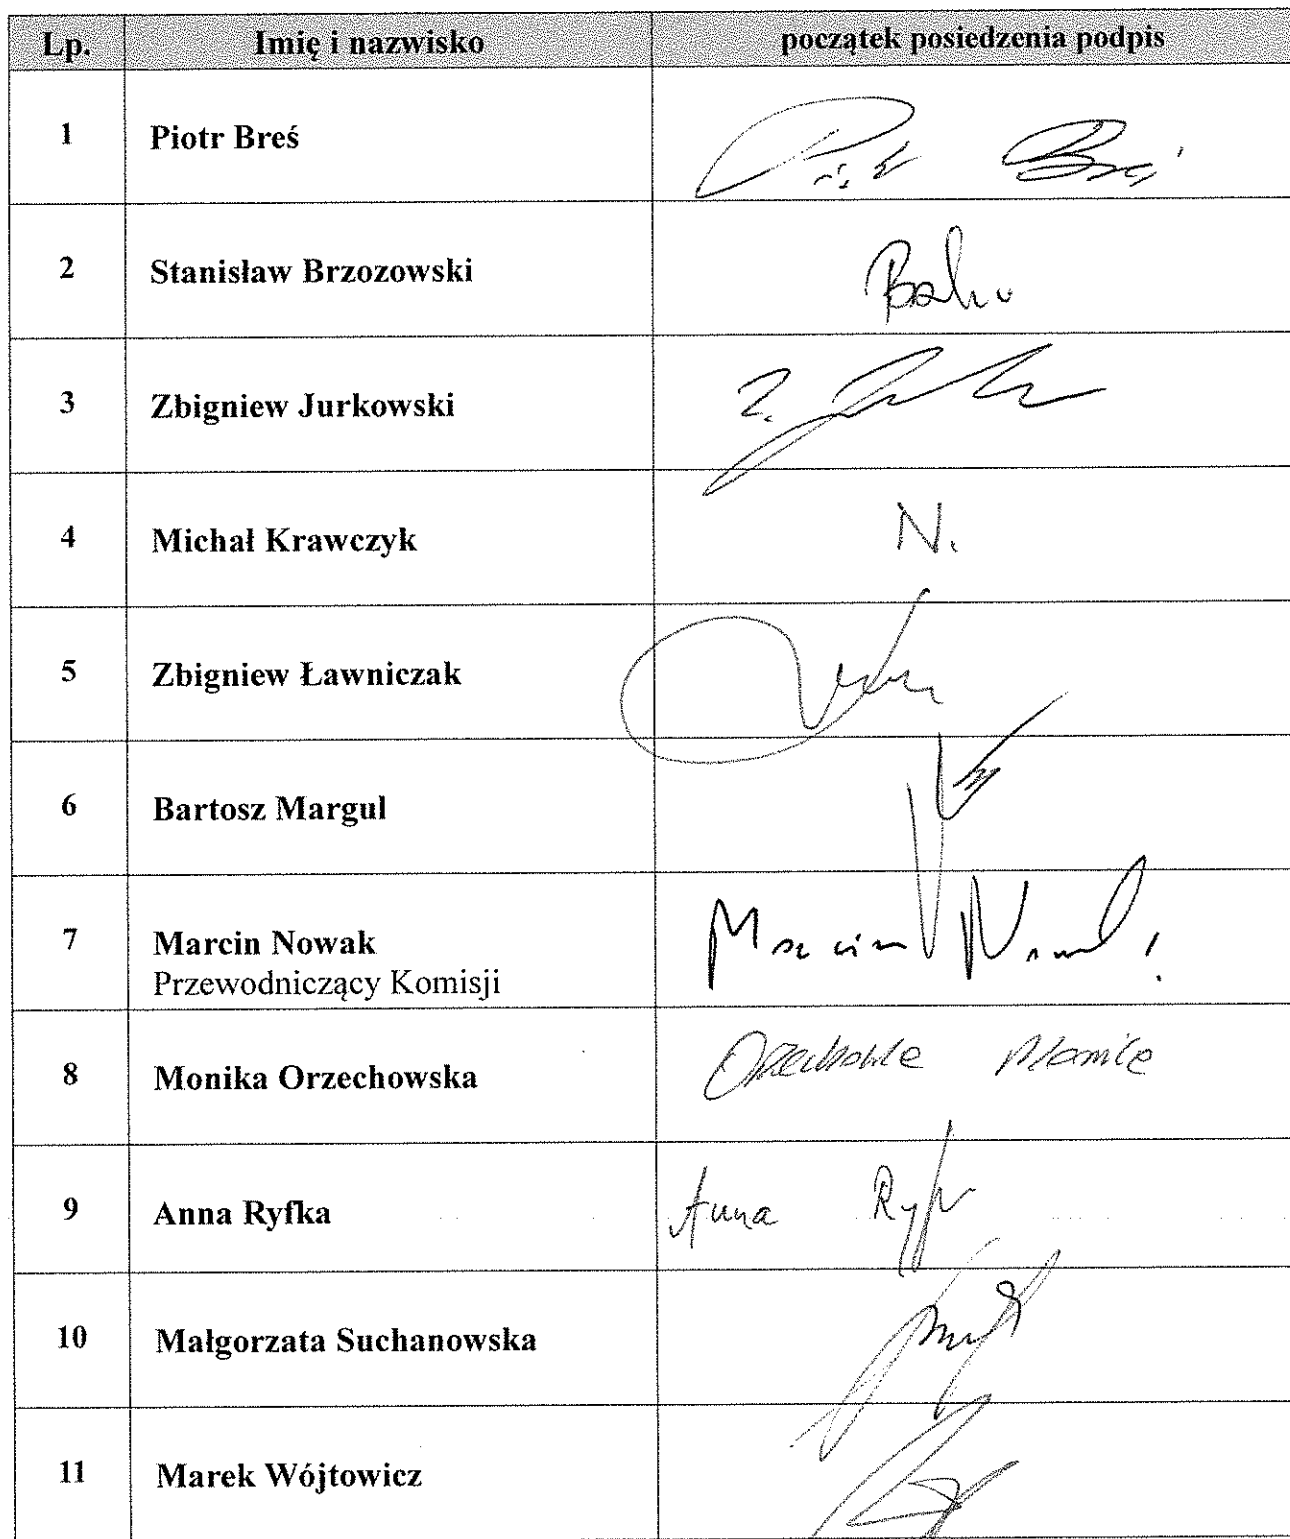 Lp. Imię i nazwisko początek posiedzenia podpis
1 Piotr Breś
2 Stanisław Brzozowski
3 Zbigniew Jurkowski Z.
4 Michał Krawczyk N.
5 Zbigniew Ławniczak
6 Bartosz Margul
7 Marcin Nowak Marcin
Przewodniczący Komisji
8 Monika Orzechowska
9 Anna Ryfka Anna
10 Małgorzata Suchanowska
11 Marek Wójtowicz